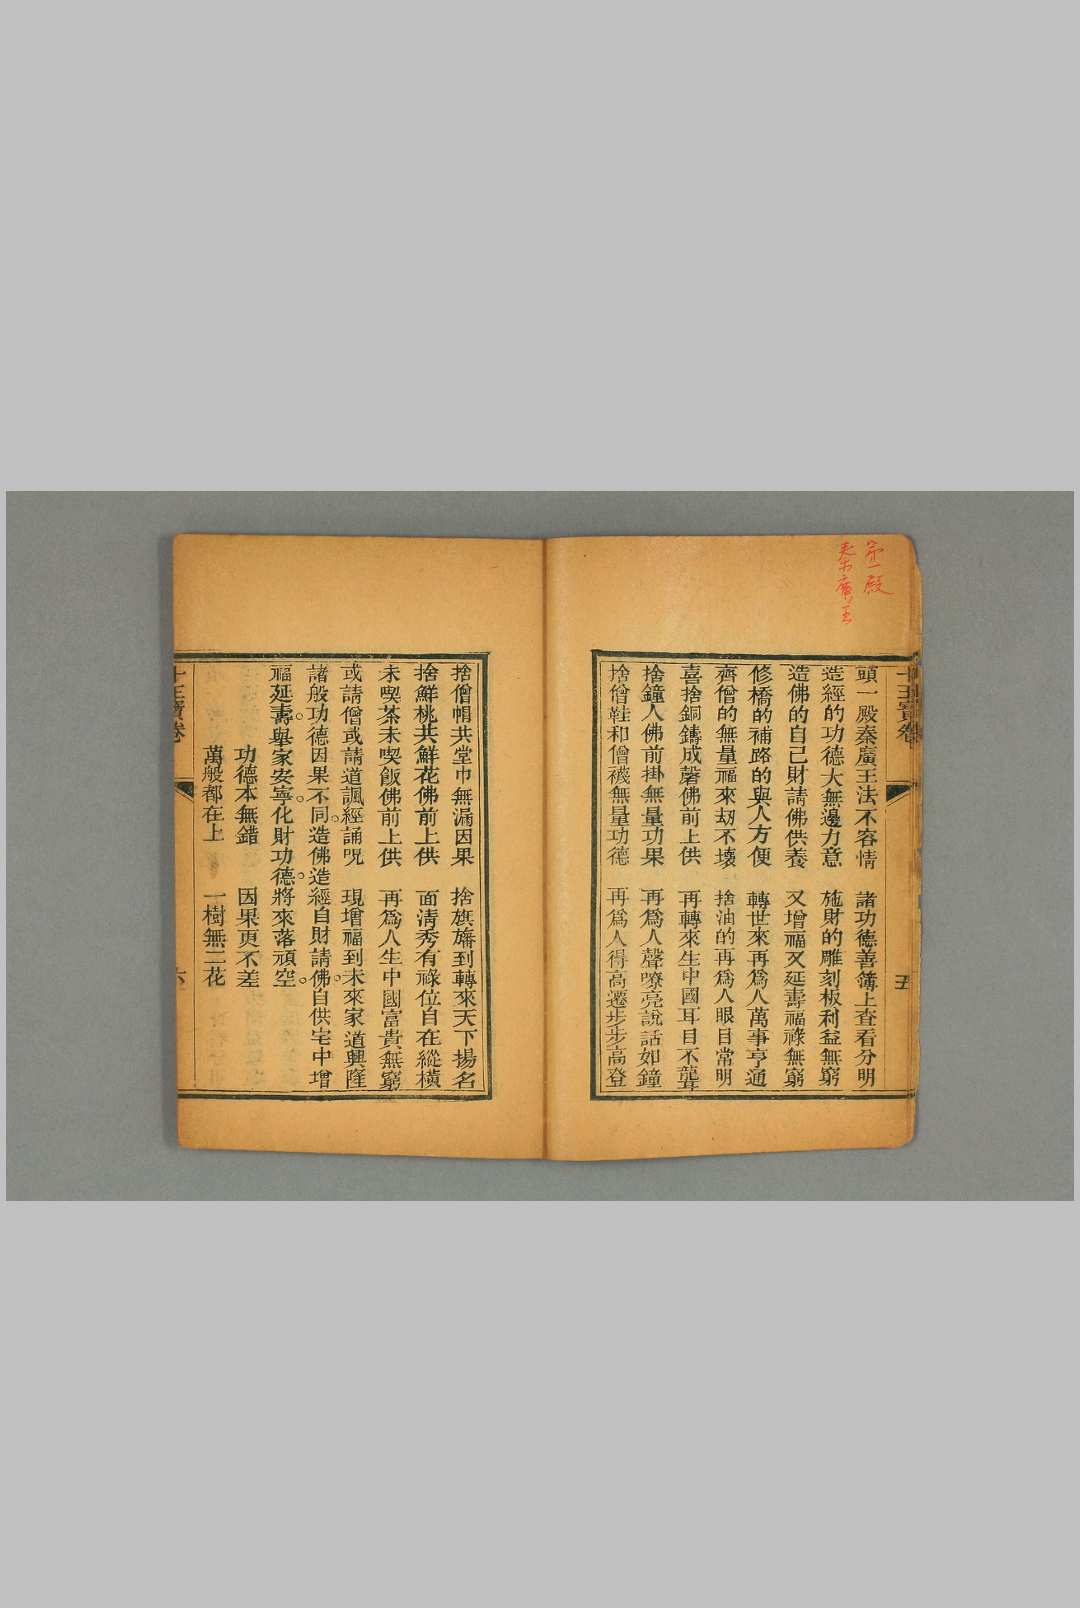 第一殿
秦廣王
十王寶卷
五
頭一殿秦廣王法不容情 諸功德善簿上查看分明
造經的功德大無邊力意 施財的雕刻板利益無窮
造佛的自己財請佛供養 又增福又延壽福祿無窮
修橋的補路的與人方便 轉世來再爲人萬事亨通
齊僧的無量福來刼不壞 捨油的再爲人眼目常明
喜捨銅鑄成磬佛前上供 再轉來生中國耳目不聾
捨鐘人佛前掛無量功果 再爲人聲嘹亮說話如鐘
捨僧鞋和僧襪無量功德 再爲人得高遷步步高登
捨僧帽共堂巾無漏因果 捨旗旛到轉來天下揚名
捨鮮桃共鮮花佛前上供 面清秀有祿位自在縱橫
未喫茶未喫飯佛前上供 再爲人生中國富貴無窮
或請僧或請道諷經誦呪 現增福到未來家道興隆
諸般功德因果不同。造佛造經自財請佛。自供宅中增
福延壽。舉家安寧。化財功德。將來落頑空。
功德本無錯 因果更不差
萬般都在上 一樹無二花
十王寶卷
六